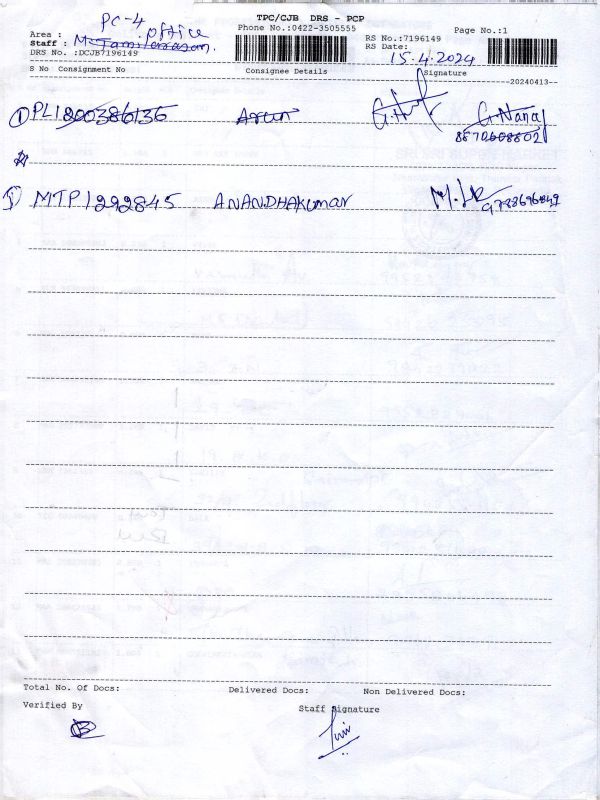 TPC/CJB DRS - PCP
Area : PC-4 office
Phone No.:0422-3505555
RS No.:7196149
Page No.:1
Staff : M. Tamilerasan.
RS Date: 15.4.2024
DRS No. :DCJB7196149
S No Consignment No Consignee Details Signature
20240413
① PL1800386136 Arun G. Nanaj
8870608802
5) MTP1292845 ANANDHAKUMAR
9788696849
Total No. Of Docs: Delivered Docs: Non Delivered Docs:
Verified By Staff Signature